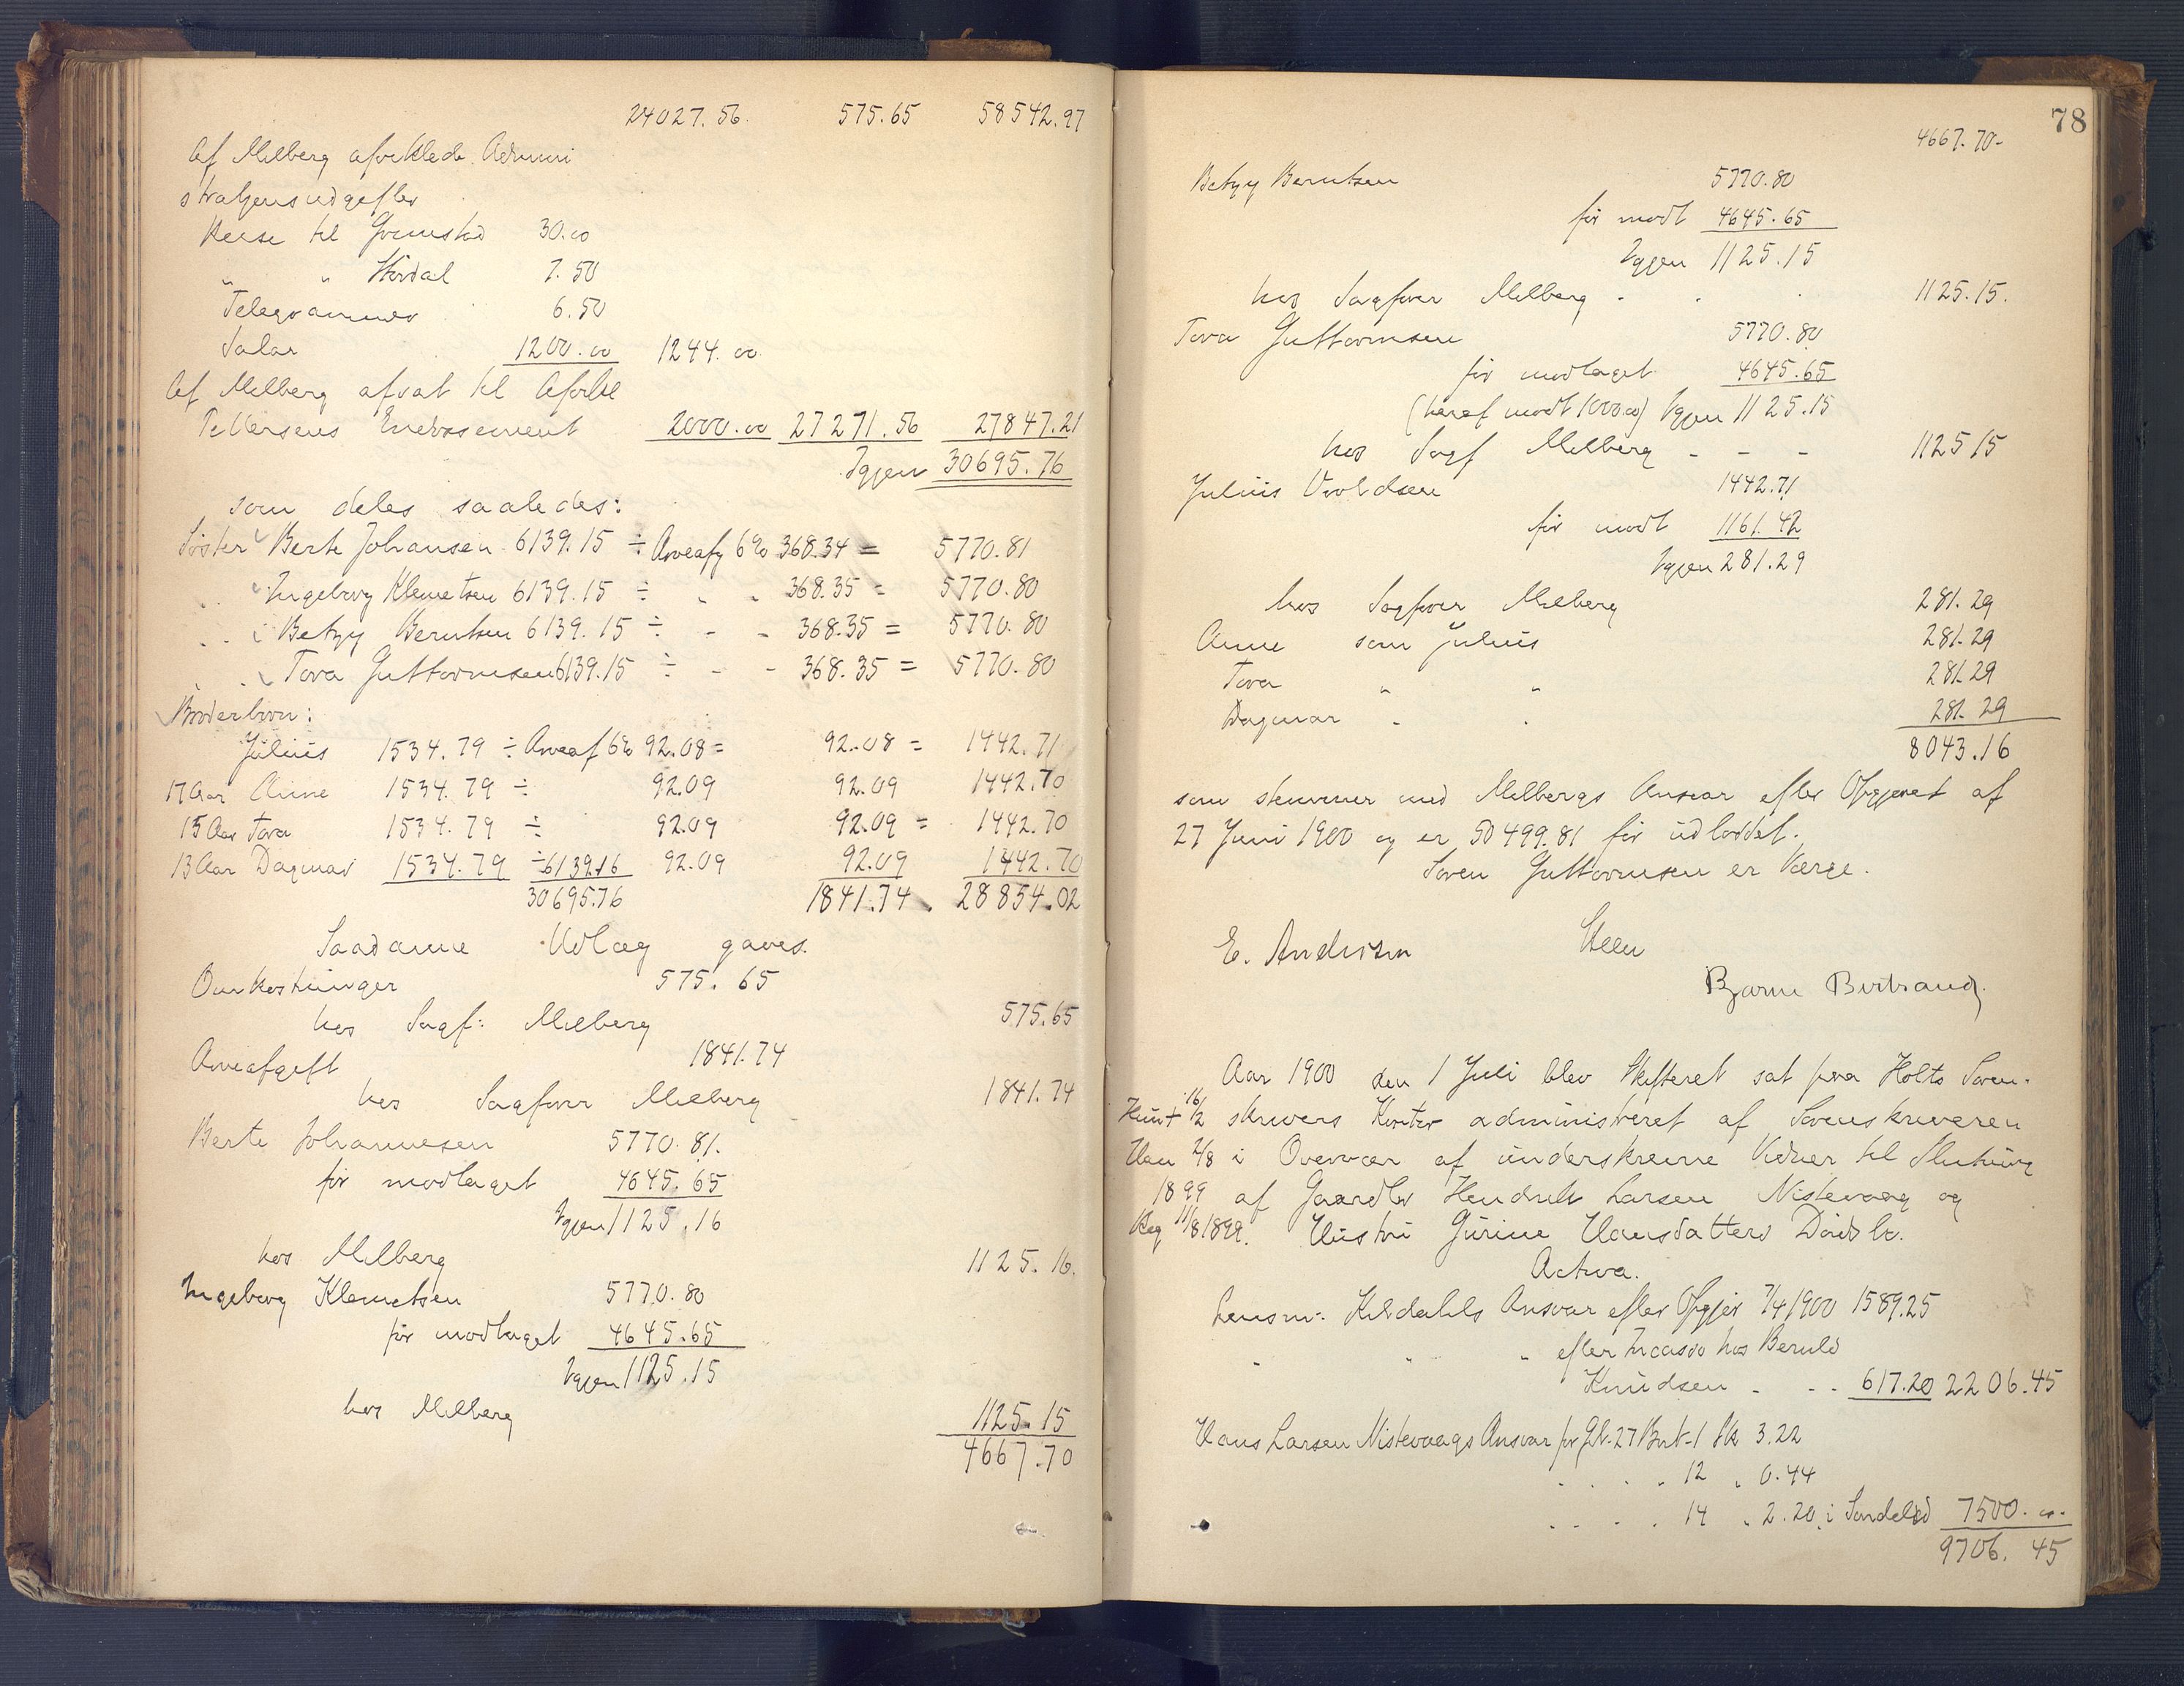 24027.56. 575.65 58542.97
Af Melberg afviklede Admini
strationsudgifter
Reise til Grimstad 30.00
" " Hirdal 7.50
Telegrammer 6.50
Salar 1200.00 1244.00
Af Melberg afsat til
Pettersens 2000.00 27271.56 27847.21
Igjen 30695.76
som deles saaledes:
Söster Berte Johansen 6139.15 ÷ Arveafg 6% 368.34 = 5770.81
" Ingeborg Klemetsen 6139.15 ÷ " " 368.35 = 5770.80
" Betzy Berntsen 6139.15 ÷ - - 368.35 = 5770.80
" Tora Guttormsen 6139.15 ÷ - - 368.35 = 5770.80
Broderbörn:
Julius 1534.79 ÷ Arveaf 6% 92.08 = 92.08 = 1442.71
17 Aar Anne 1534.79 ÷ 92.09 92.09 1442.70
15 Aar Tora 1534.79 ÷ 92.09 92.09 = 1442.70
13 Aar Dagmar 1534.79 ÷ 6139.16 92.09 92.09 1442.70
30695.76 1841.74. 28854.02
Saadanne Udlæg gaves.
Omkostninger 575.65
hos Sagf: Melberg 575.65
Arveafgift 1841.74
hos Sagfører Melberg 1841.74
Berte Johannesen 5770.81.
för modtaget 4645.65
Igjen 1125.16
hos Melberg 1125.16.
Ingeborg Klemetsen 5770.80
för modtaget 4645.65
Igjen 1125.15
hos Melberg 1125.15
4667.70
78
4667.70-
Betzy Berntsen 5770.80
för modt 4645.65
Igjen 1125.15
hos Sagförer Melberg - 1125.15.
Tora Guttormsen 5770.80
för modtaget 4645.65
(heraf modt 1000.00) Igjen 1125.15
hos Sagf Melberg - - - 1125 15
Julius 1442.71
för modt 1161.42
Igjen 281.29
hos Sagförer Melberg 281.29
Anne som Julius 281.29
Tora " " 281.29
Dagmar " " 281.29
8043.16
som stemmer med Melbergs Ansvar efter Opgjöret af
27 Juni 1900 og er 50499.81 för udloddet.
Sören Guttormsen er Værge.
E. Andersen
Bjarne Bertrand.
Aar 1900 den 1 Juli blev Skifteret sat paa Holts Soren-
Kunt 16/2 skrivers Kontor administreret af Sorenskriveren
2/8 i Overvær af underskrevne Vidner til Slutning
1899 af Gaardbr Hendrik Larsen Nistevaag og
Reg 11/8 1899. Hustru Gurine Hansdatters Dödsbo.
Activa.
Lensm: Kildahls Ansvar efter Opgjör 7/4 1900 1589.25
" " " efter Incasso hos Beruld
Knudsen - - - 617.20 2206.45
Hans Larsen Nistevaags Ansvar for Gt.27 Brt-1 Sk 3.22
" " " " 12 " 0.44
" " " " 14 " 2.20 i Söndeled 7500.00.
9706.45